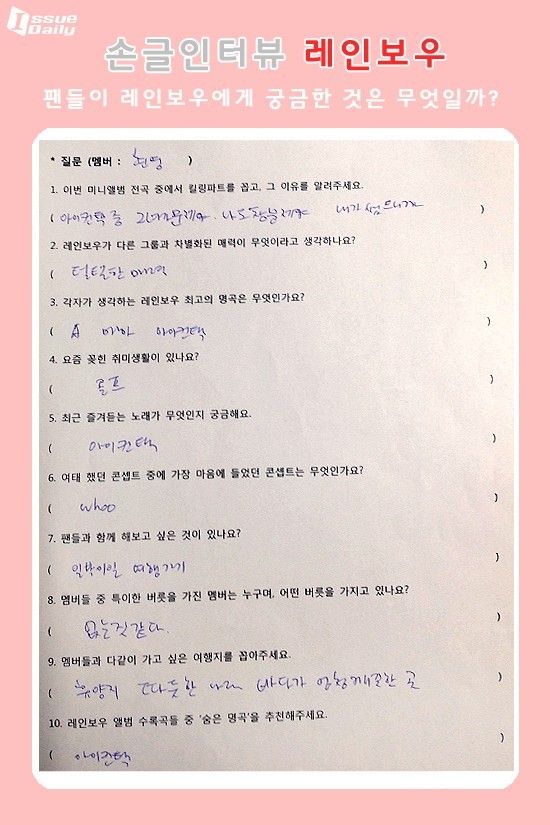 Issue
Daily
손글인터뷰 레인보우
팬들이 레인보우에게 궁금한 것은 무엇일까?
* 질문 (멤버 : 현영 )
1. 이번 미니앨범 전곡 중에서 킬링파트를 꼽고, 그 이유를 알려주세요.
( 아이컨택 중 )
2. 레인보우가 다른 그룹과 차별화된 매력이 무엇이라고 생각하나요?
( 털털한 매력 )
3. 각자가 생각하는 레인보우 최고의 명곡은 무엇인가요?
( A 마하 아이컨택 )
4. 요즘 꽂힌 취미생활이 있나요?
( 골프 )
5. 최근 즐겨듣는 노래가 무엇인지 궁금해요.
( 아이컨택 )
6. 여태 했던 콘셉트 중에 가장 마음에 들었던 콘셉트는 무엇인가요?
( whoo )
7. 팬들과 함께 해보고 싶은 것이 있나요?
( 일박이일 여행가기 )
8. 멤버들 중 특이한 버릇을 가진 멤버는 누구며, 어떤 버릇을 가지고 있나요?
( 없는것같다. )
9. 멤버들과 다같이 가고 싶은 여행지를 꼽아주세요.
( 휴양지 따듯한 나라 바다가 엄청깨끗한 곳 )
10. 레인보우 앨범 수록곡들 중 '숨은 명곡'을 추천해주세요.
( 아이컨택 )